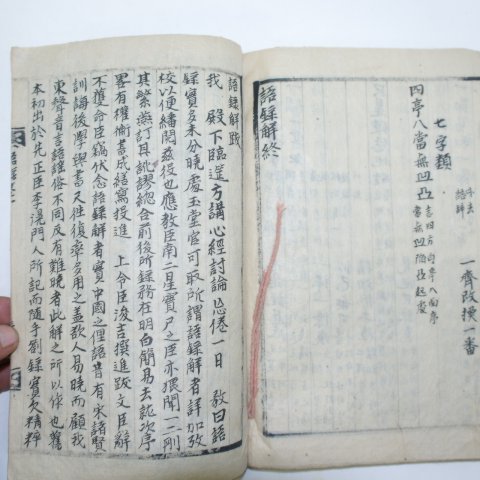 一齊改換一番
七字類
四亭八當無凹凸
當無凹陷凸起處
語錄解終
語錄解跋
我 殿下臨筵方講心經討論忘倦一日 敎曰語
錄實多未分曉處玉堂官可取所謂語錄解者詳加攷
校以便繙閱茲後也應敎臣南二星實尸之臣亦猥聞一二刪
其繁蕪訂其訛謬總合前後所錄務在明白簡易去就次序
畧有權衡書成繕寫投進 上令臣浚吉撰進跋文臣辭
不獲命臣竊伏念語錄解者實中國之俚語昔有宋諸賢
訓誨後學與書尺往復率多用之盖欲人易曉而顧我
東聲音言語謠俗不同反有難曉者此解之所以作也舊
本初出於先正臣李滉門人所記而隨手劄錄實欠精粹